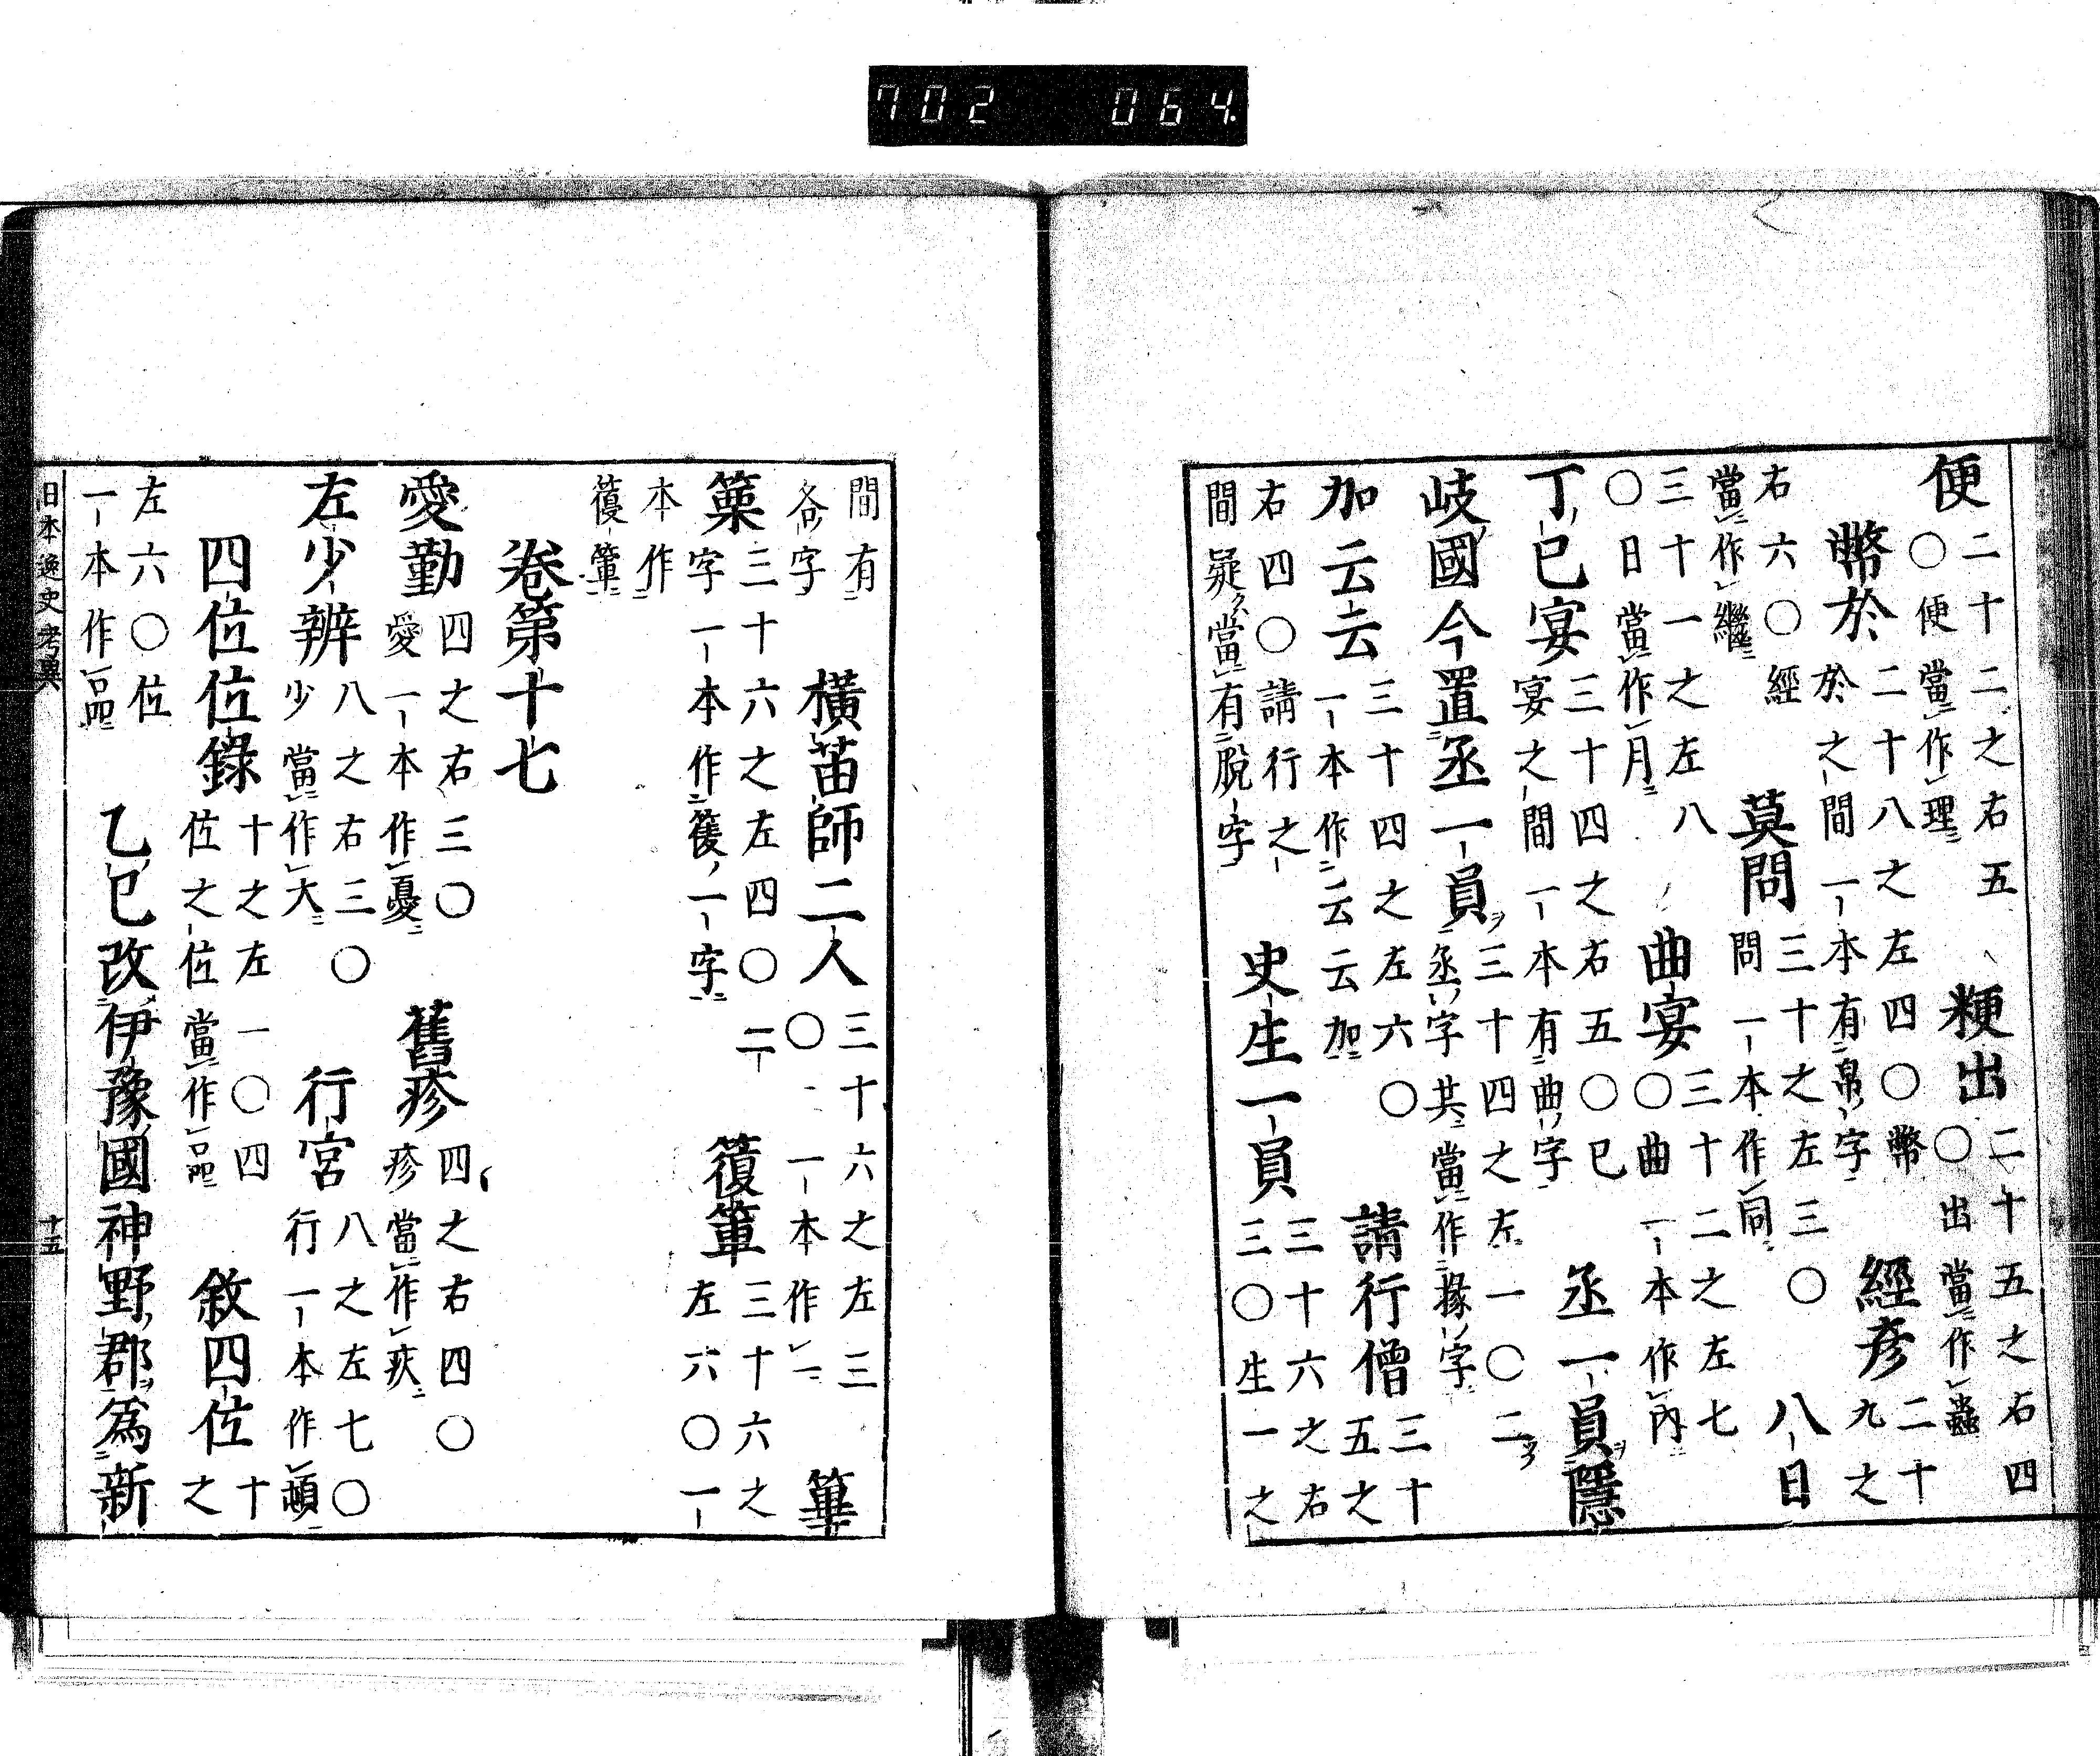 便二十二之右五〇便當作理　粳出二十五之右四〇出當作蟲
幣於二十八之左四〇幣於之間一本有帛字　經彦二十九之
右六〇經當作繼　莫問三十之左三〇問一本作同　八日
三十一之左八〇日當作月　曲宴三十二之左七〇曲一本作內
丁巳宴三十四之右五〇巳宴之間一本有曲字　丞一員隱
岐國今置丞一員三十四之左一〇二丞字共當作掾字
加云云三十四之左六〇一本作云云加　請行僧三十五之
右四〇請行之間疑當有脫字　史生一員三十六之右三〇生一之
間有各字　橫笛師二人三十六之左三〇一本作一　篳
篥三十六之左四〇二字一本作篗一字　三十六之左六〇一
本作
卷第十七
愛勤四之右三〇愛一本作憂　舊疹四之右四〇疹當作疾
左少辨八之右三〇少當作大　行宮八之左七〇行一本作頓
四位位錄十之左一〇四位之位當作品　敘四位十之
左六〇位一本作品　乙巳改伊豫國神野郡爲新
日本逸史考異　十五
702 064.